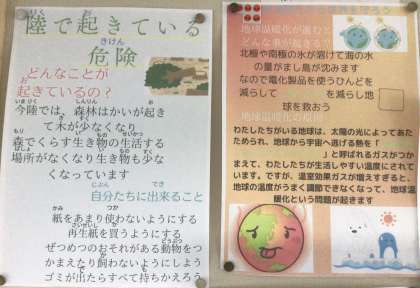 陸で起きている
危険
どんなことが
起きているの？
今陸では、森林はかいが起き
て木が少なくなり
森でくらす生き物の生活する
場所がなくなり生き物も少な
くなっています
自分たちに出来ること
紙をあまり使わないようにする
再生紙を買うようにする
ぜつめつのおそれがある動物をつ
かまえたり飼わないようにしよう
ゴミが出たらすべて持ちかえろう
地球温暖化が進むと
北極や南極の氷が溶けて海の水
の量がまし島が沈みます
なので電化製品を使うひんどを
減らして　　　を減らし地
球を救おう
地球温暖化の原因
わたしたちがいる地球は、太陽の光によってあた
ためられ、地球から宇宙へ逃げる熱を「
」と呼ばれるガスがつか
まえて、わたしたちが生活しやすい温度にされて
います。ですが、温室効果ガスが増えすぎると、
地球の温度がうまく調節できなくなって、地球温
暖化という問題が起きます